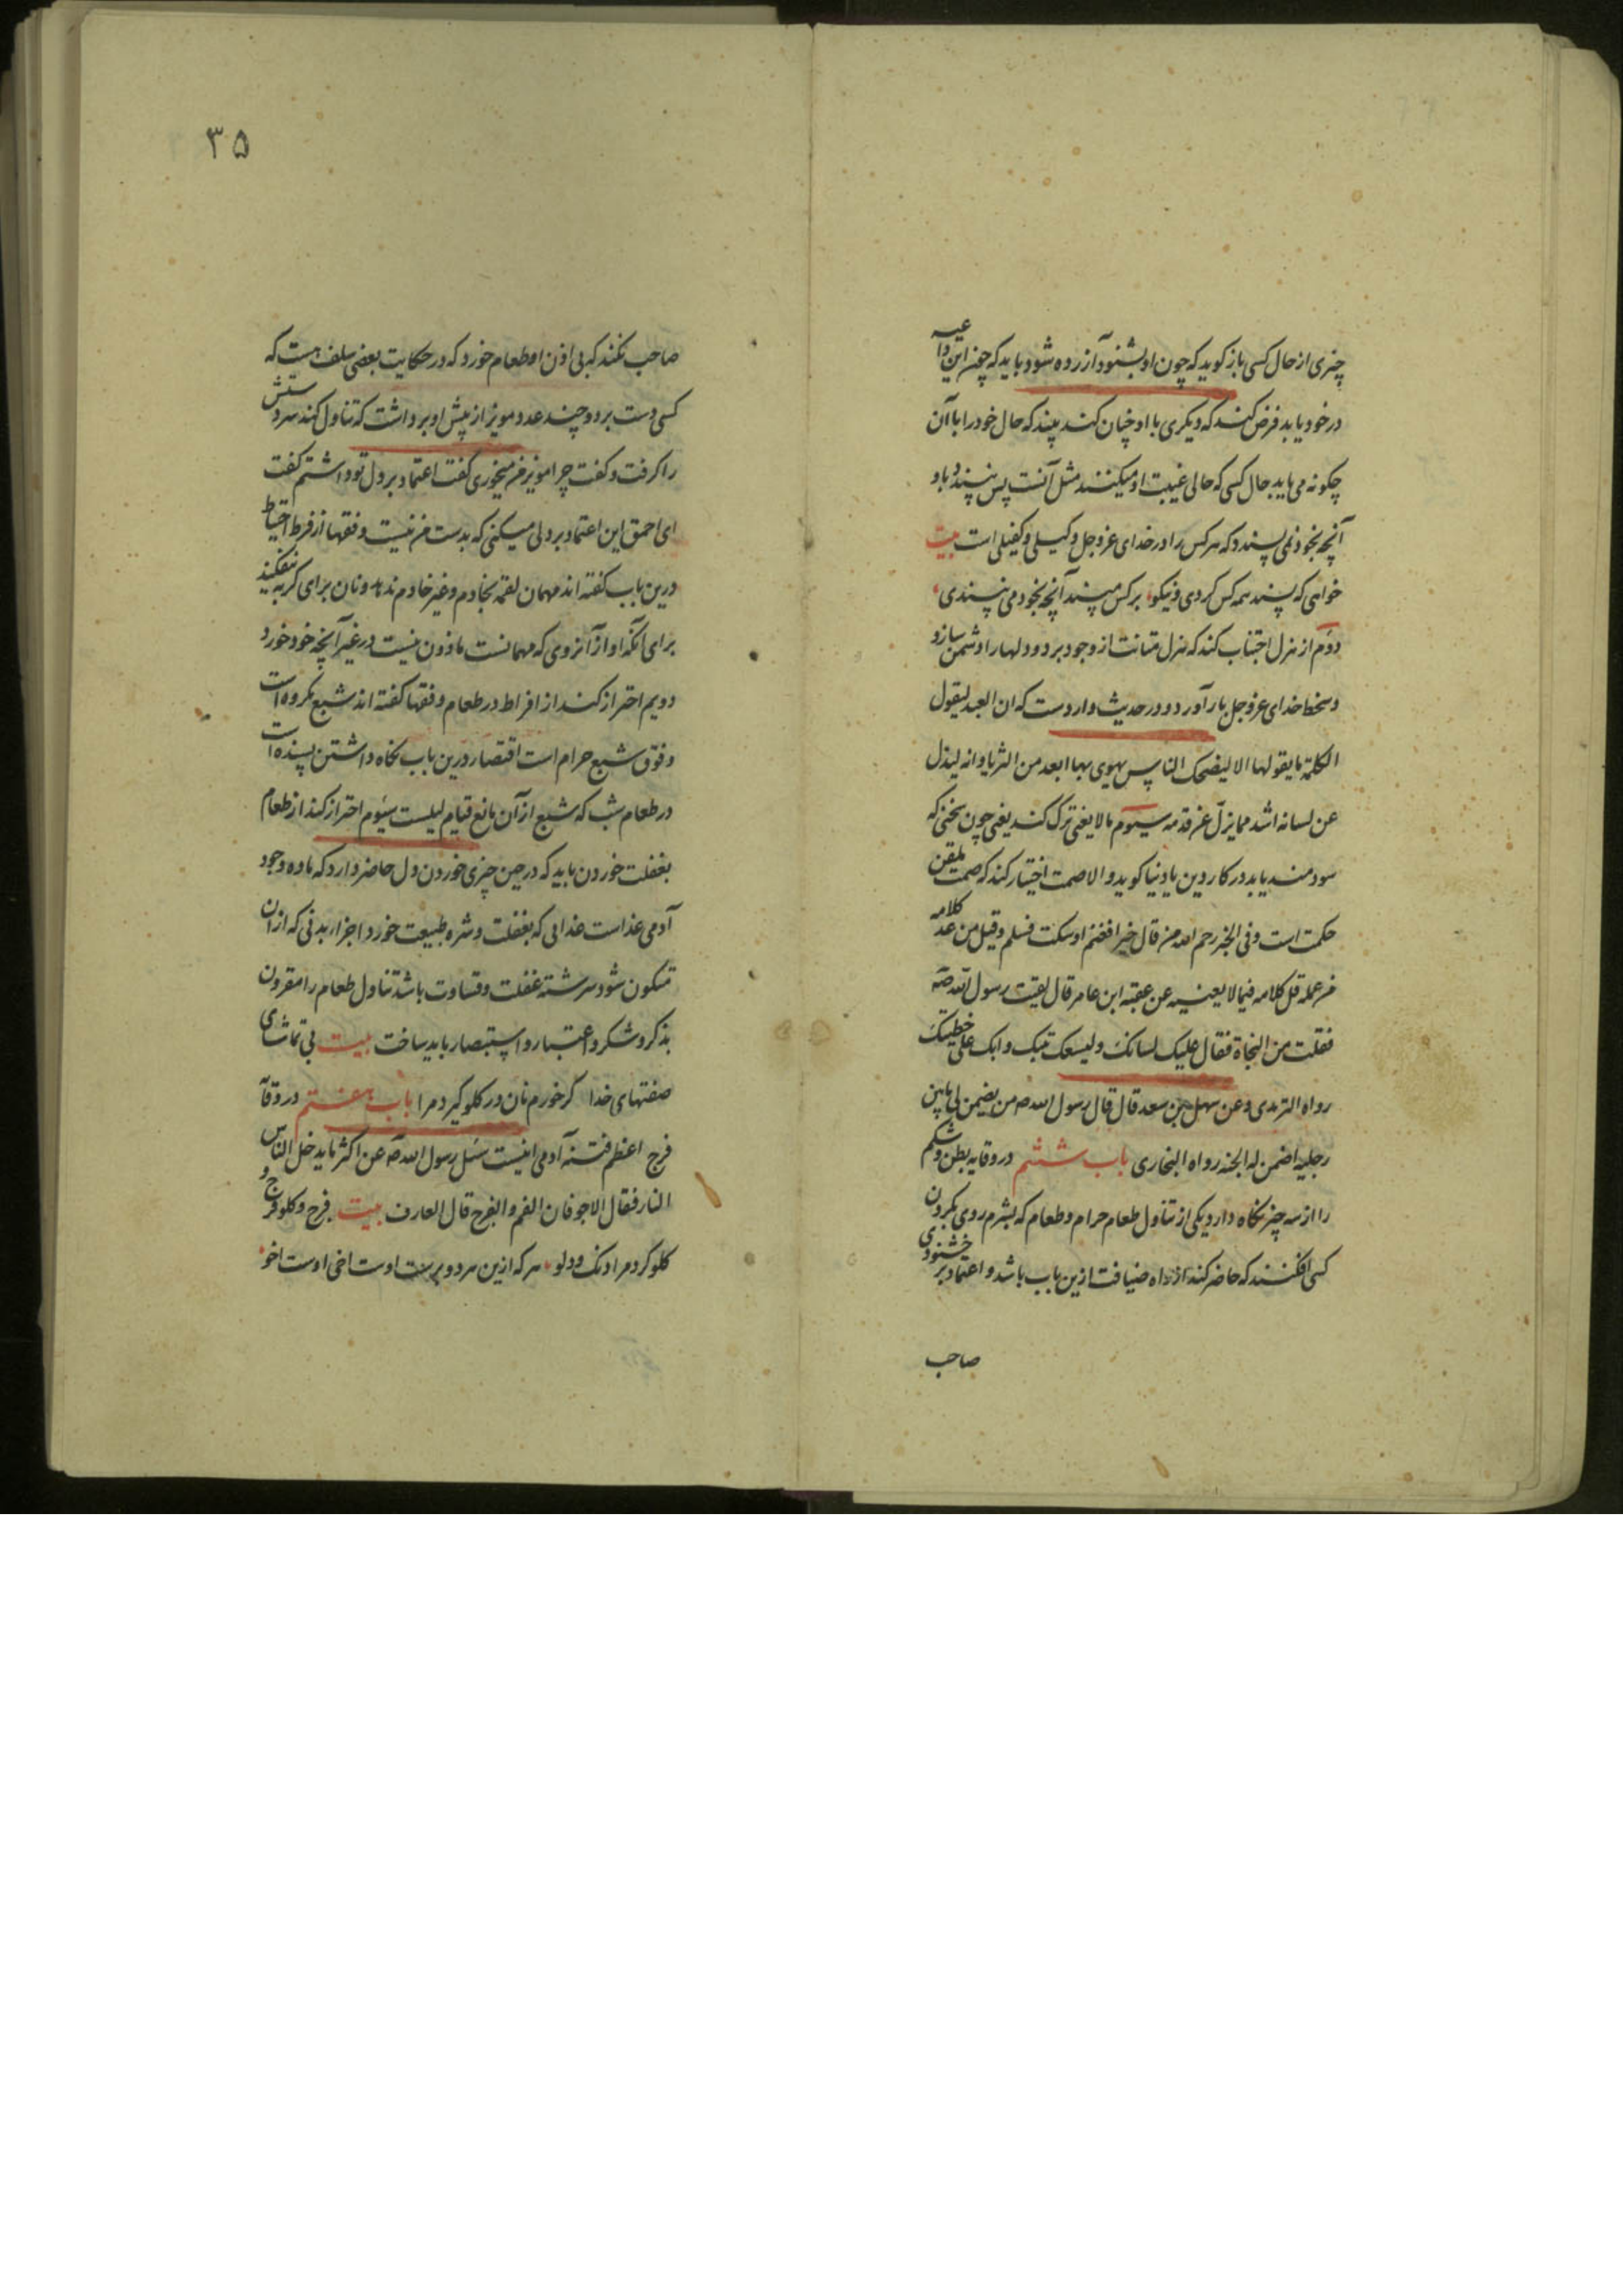 چیزی از حال کسی باز کوید که چون او بشنود آزرده شود و باید که چون این داعیه
در خود یابد فرض کند که دیکری با او چنان کند بیند که حال خود را با آن
چکونه می یابد حال کسی که حالی غیبت او میکنند مثل آنست پس نپسندد باو
آنچه بخود نمی پسندد که هر کس را در خدای عزوجل وکیلی و کفیلی است بیت
خواهی که پسند همه کس کردی و نیکو برکس مپسند آنچه بخود می نپسندی
دوم از هزل اجتناب کند که هزل متانت از وجود برد و دلها را دشمن سازد
و سخط خدای عزوجل بار آورد و در حدیث واردست که ان العبد لیقول
الکلمة ما یقولها الا لیضحک الناس یهوی بها ابعد من الثریا وانه لیذل
عن لسانه اشد مما یزل عن قدمه سیوم مالا یعنی ترک کند یعنی چون سخنی که
سودمند یابد در کار دین یا دنیا کوید والا صمت اختیار کند که صمت تلقین
حکمت است و فی الخبر رحم الله من قال خیرا فغنم او سکت فسلم و قیل من عد کلامه
من عمله قل کلامه فیما لا یعنیه عن عقبة ابن عامر قال لقیت رسول الله صه
فقلت من النجاة فقال علیک لسانک و لیسعک بیتک و ابک علی خطیئتک
رواه الترمدی و عن سهل بن سعد قال قال رسول الله صه من یضمن لی مابین
رجلیه اضمن له الجنه رواه البخاری باب ششم در وقایه بطن و شکم
را از سه چیز نکاه دارد یکی از تناول طعام حرام و طعام که بشرم روی بکردن
کسی افکنند که حاضر کند از راه ضیافت ازین باب باشد و اعتماد بر خشنودی
صاحب
۳۵
صاحب نکند که بی اذن او طعام خورد که در حکایت بعضی سلف هست که
کسی دست برد و چند عدد مویز از پیش او برداشت که تناول کند سر دستش
را کرفت و کفت چرا مویز من میخوری کفت اعتماد بر دل تو داشتم کفت
ای احمق این اعتماد بر دلی میکنی که بدست من نیست و فقها از فرط احتیاط
درین باب کفته اند مهمان لقمه بخادم و غیر خادم ندهد و نان برای کربه نفکیند
برای آنکه او از آنروی که مهمانست ماذون نیست در غیر آنچه خود خورد
دویم احتراز کند از افراط در طعام و فقها کفته اند شبع مکروه است
و فوق شبع حرام است اقتصار درین باب نکاه داشتن پسنده است
در طعام شب که شبع از آن مانع قیام لیلست سیوم احتراز کند از طعام
بغفلت خوردن باید که در حین چیزی خوردن دل حاضر دارد که ماده وجود
آدمی غذاست غذایی که بغفلت و شره طبیعت خورد اجزاء بدنی که از آن
متکون شود سرشته غفلت و قساوت باشد تناول طعام را مقرون
بذکر و شکر و اعتبار و استبصار باید ساخت بیت بی تماشای
صفتهای خدا کر خورم نان در کلو کیرد مرا باب هفتم در وقآ
فرج اعظم فتنه آدمی اینست سئل رسول الله صه عن اکثر ما یدخل الناس
النار فقال الاجوفان الفم و الفرج قال العارف بیت فرج و کلو فرج و
کلو کرد مرا دنک و دلو هر که ازین هر دو برست اوست اخی اوست اخو